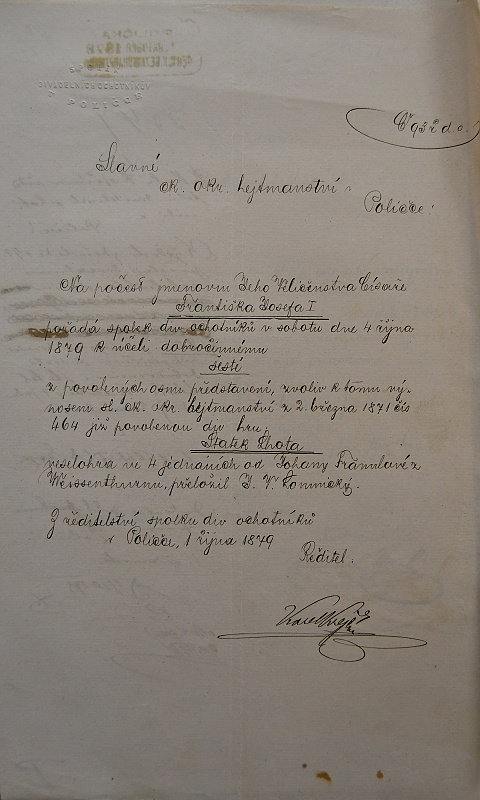 SPOLEK
DIVADELNÍCH OCHOTNÍKŮ
V POLIČCE
Slavné
ck. okr. hejtmanství v
Poličce!
Na počest jmenovin Jeho Veličenstva Císaře
Františka Josefa I
pořádá spolek div ochotníků v sobotu dne 4 října
1879 k účeli dobročinnému
šesté
z povolených osmi představení, zvoliv k tomu vý-
nosem sl. ck. okr. hejtmanství z 2. března 1871 čís
464 již povolenou div hru:
Statek Lhota
veselohra ve 4 jednáních od Johany Fránulové z
Weissenthurnu, přeložil J. V. Lomnický.
Z ředitelství spolku div ochotníků
v Poličce, 1 října 1879
Ředitel: